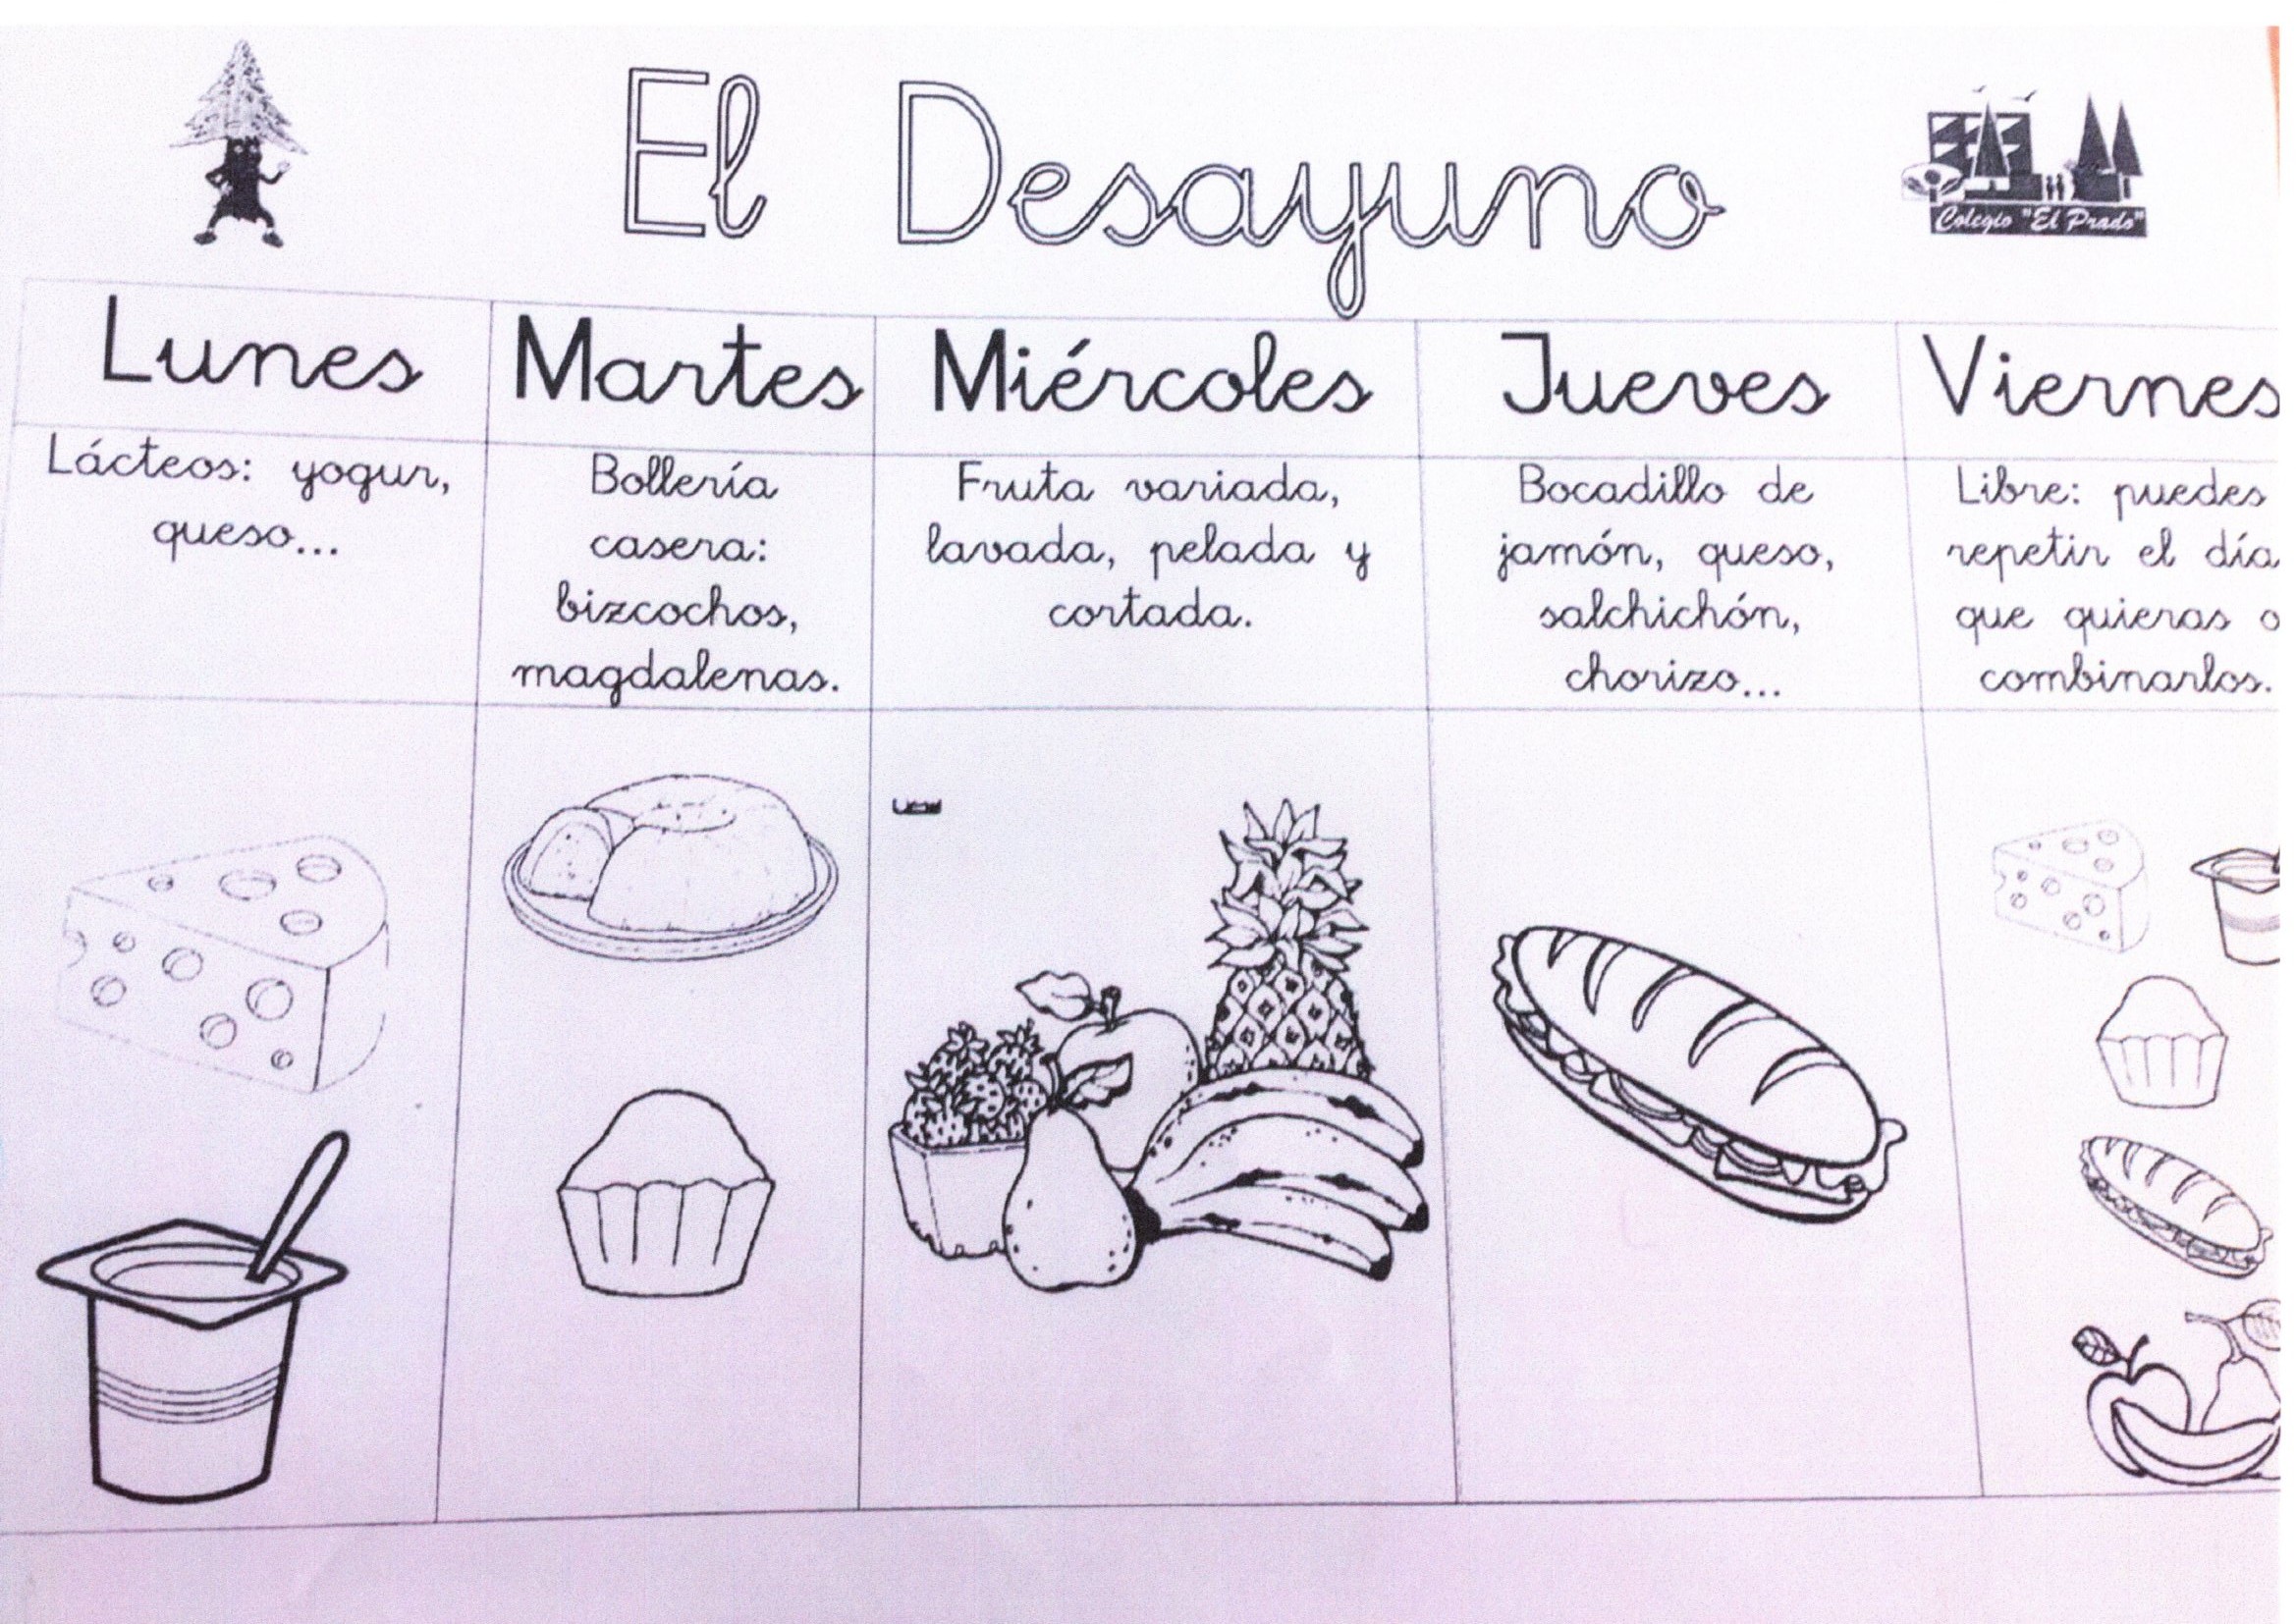 El Desayuno
Colegio "El Prado"
Lunes
Martes
Miércoles
Jueves
Viernes
Lácteos: yogur,
queso...
Bollería
casera:
bizcochos,
magdalenas.
Fruta variada,
lavada, pelada y
cortada.
Bocadillo de
jamón, queso,
salchichón,
chorizo...
Libre: puedes
repetir el día
que quieras o
combinarlos.